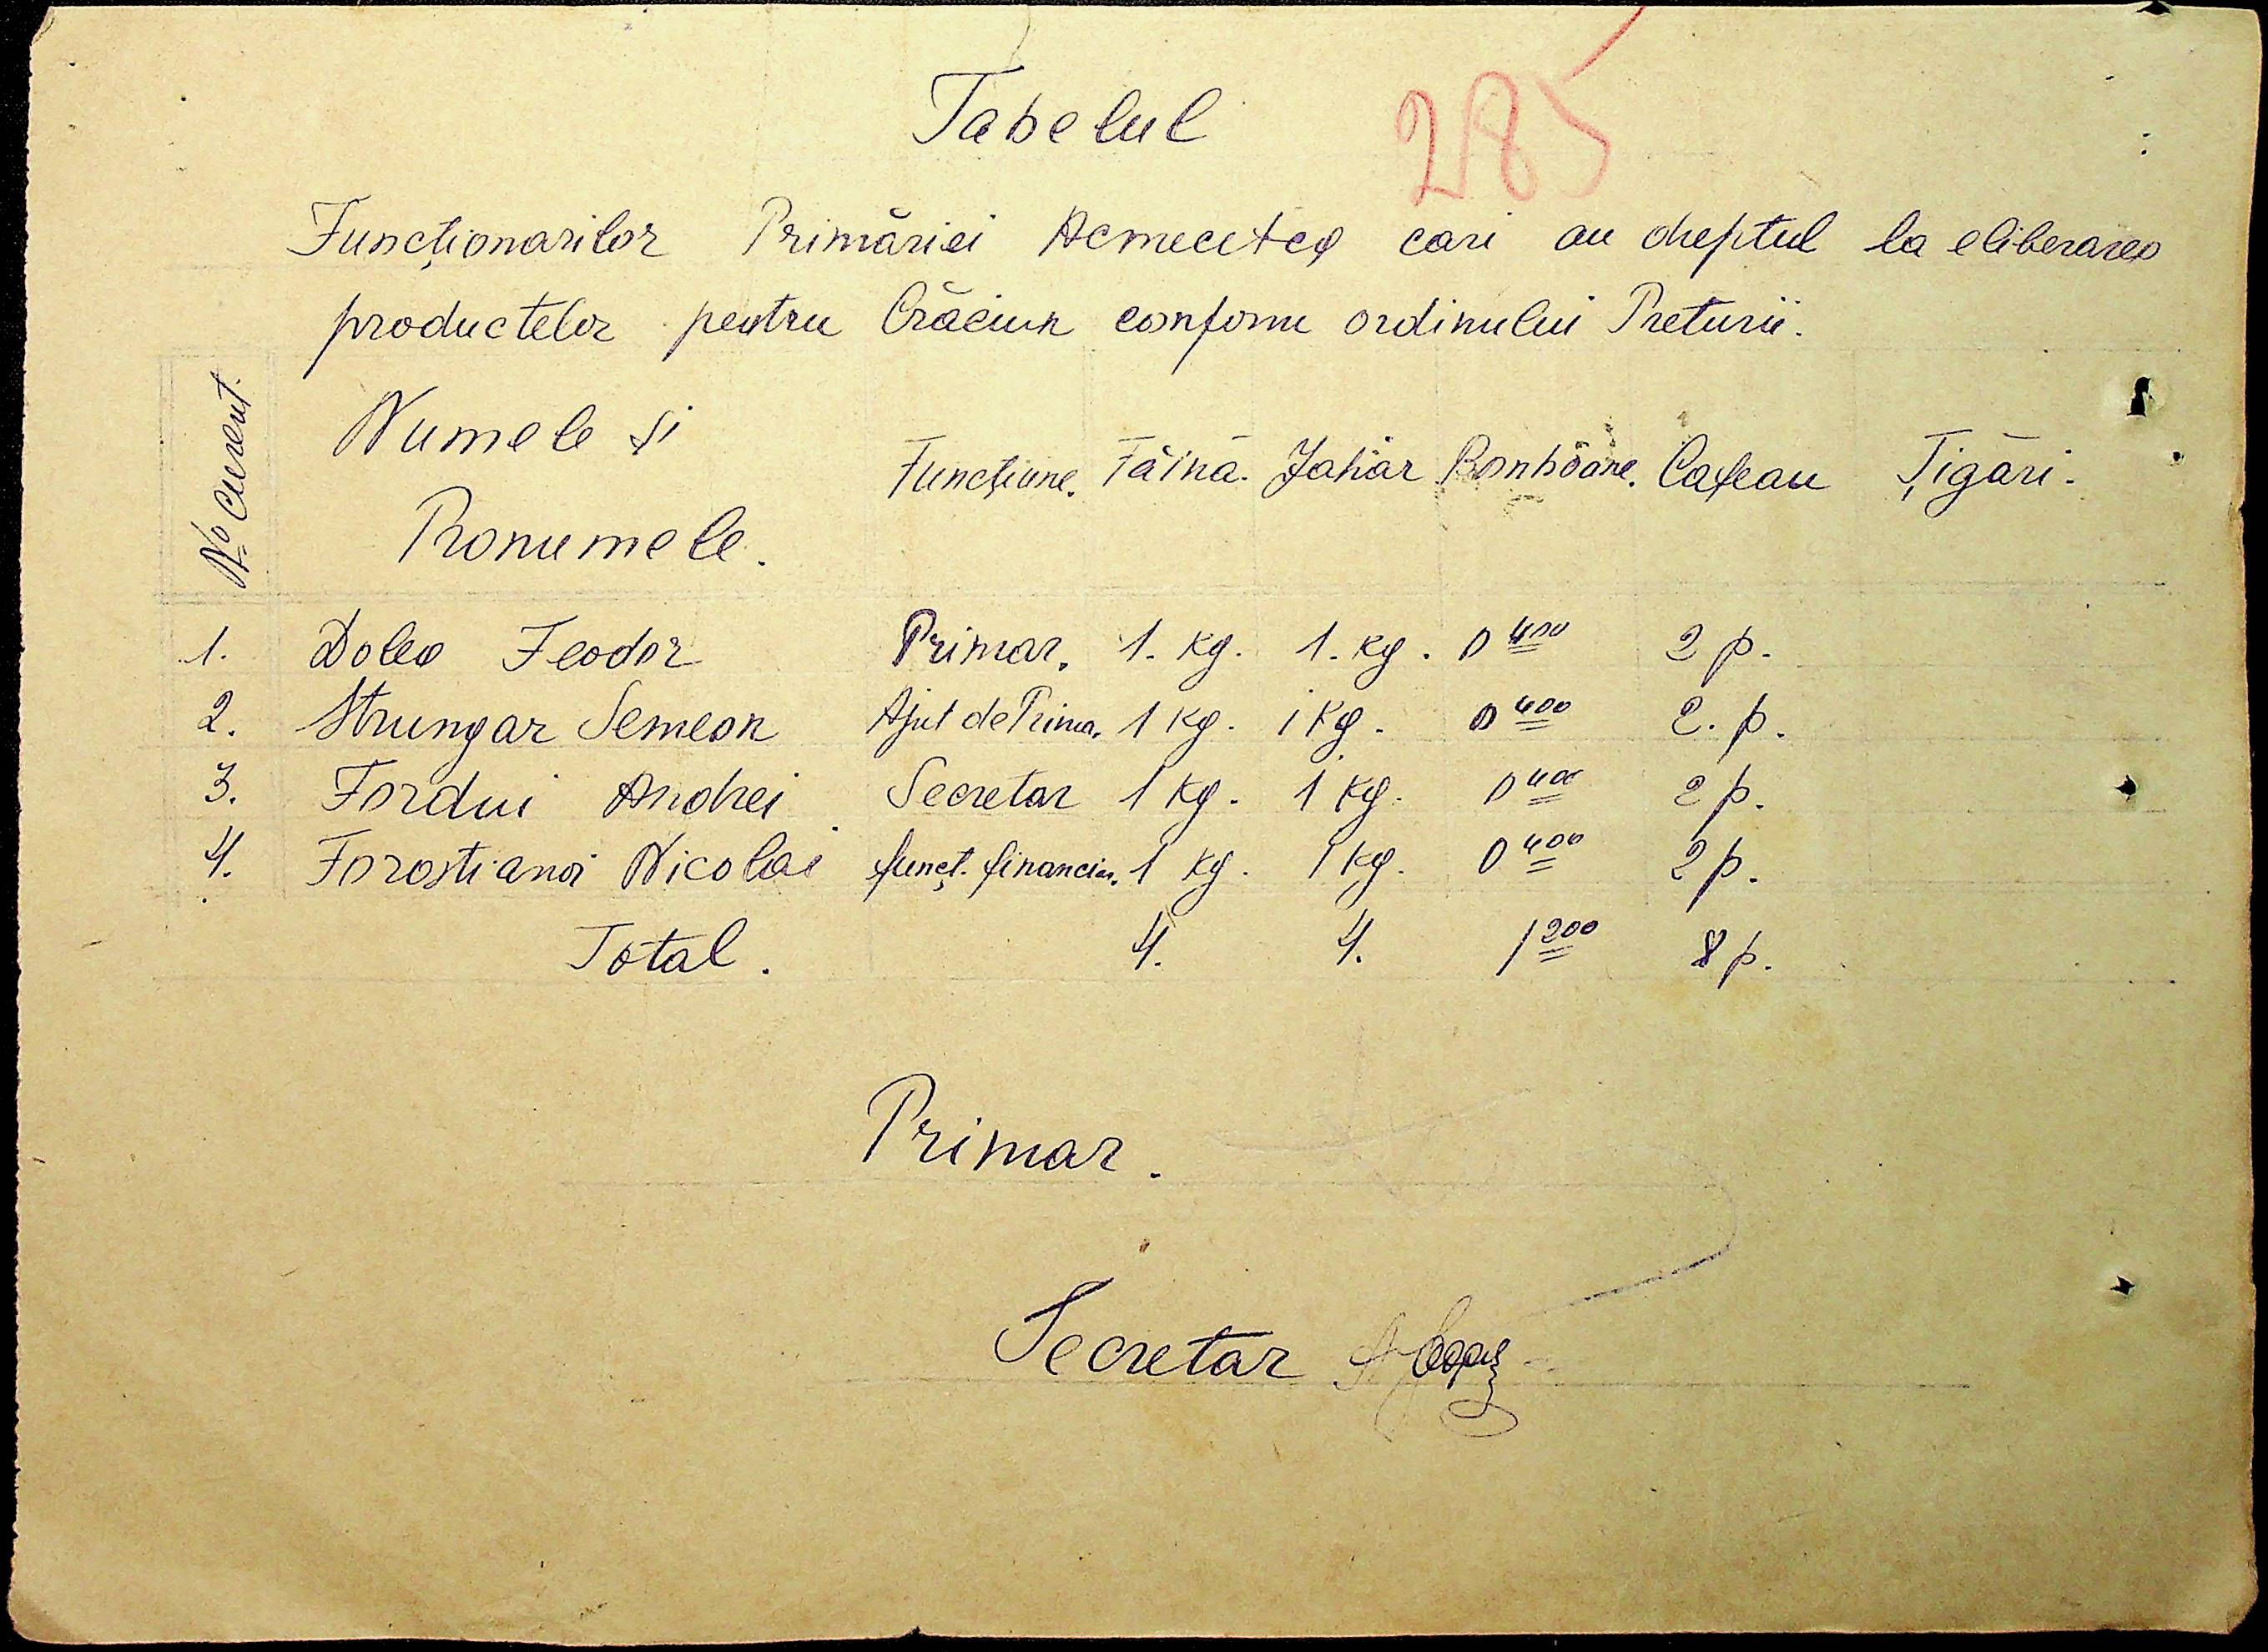 Tabelul
285
Funcționarilor Primăriei Acmecetca cari au dreptul la eliberarea
productelor pentru Crăciun conform ordinului Preturii.
No curent. Numele și Pronumele. Funcțiune. Făină. Zahăr Bonboane. Cafeau Țigări.
1. Dolea Feodor Primar. 1. kg. 1. kg. 0 400 2 p.
2. Strungar Semeon Ajut de Prima. 1 kg. 1 kg. 0 400 2. p.
3. Fordui Andrei Secretar 1 kg. 1 kg. 0 400 2 p.
4. Forostianoi Nicolai funcț. financiar. 1 kg. 1 kg. 0 400 2 p.
Total. 4. 4. 1 200 8 p.
Primar.
Secretar